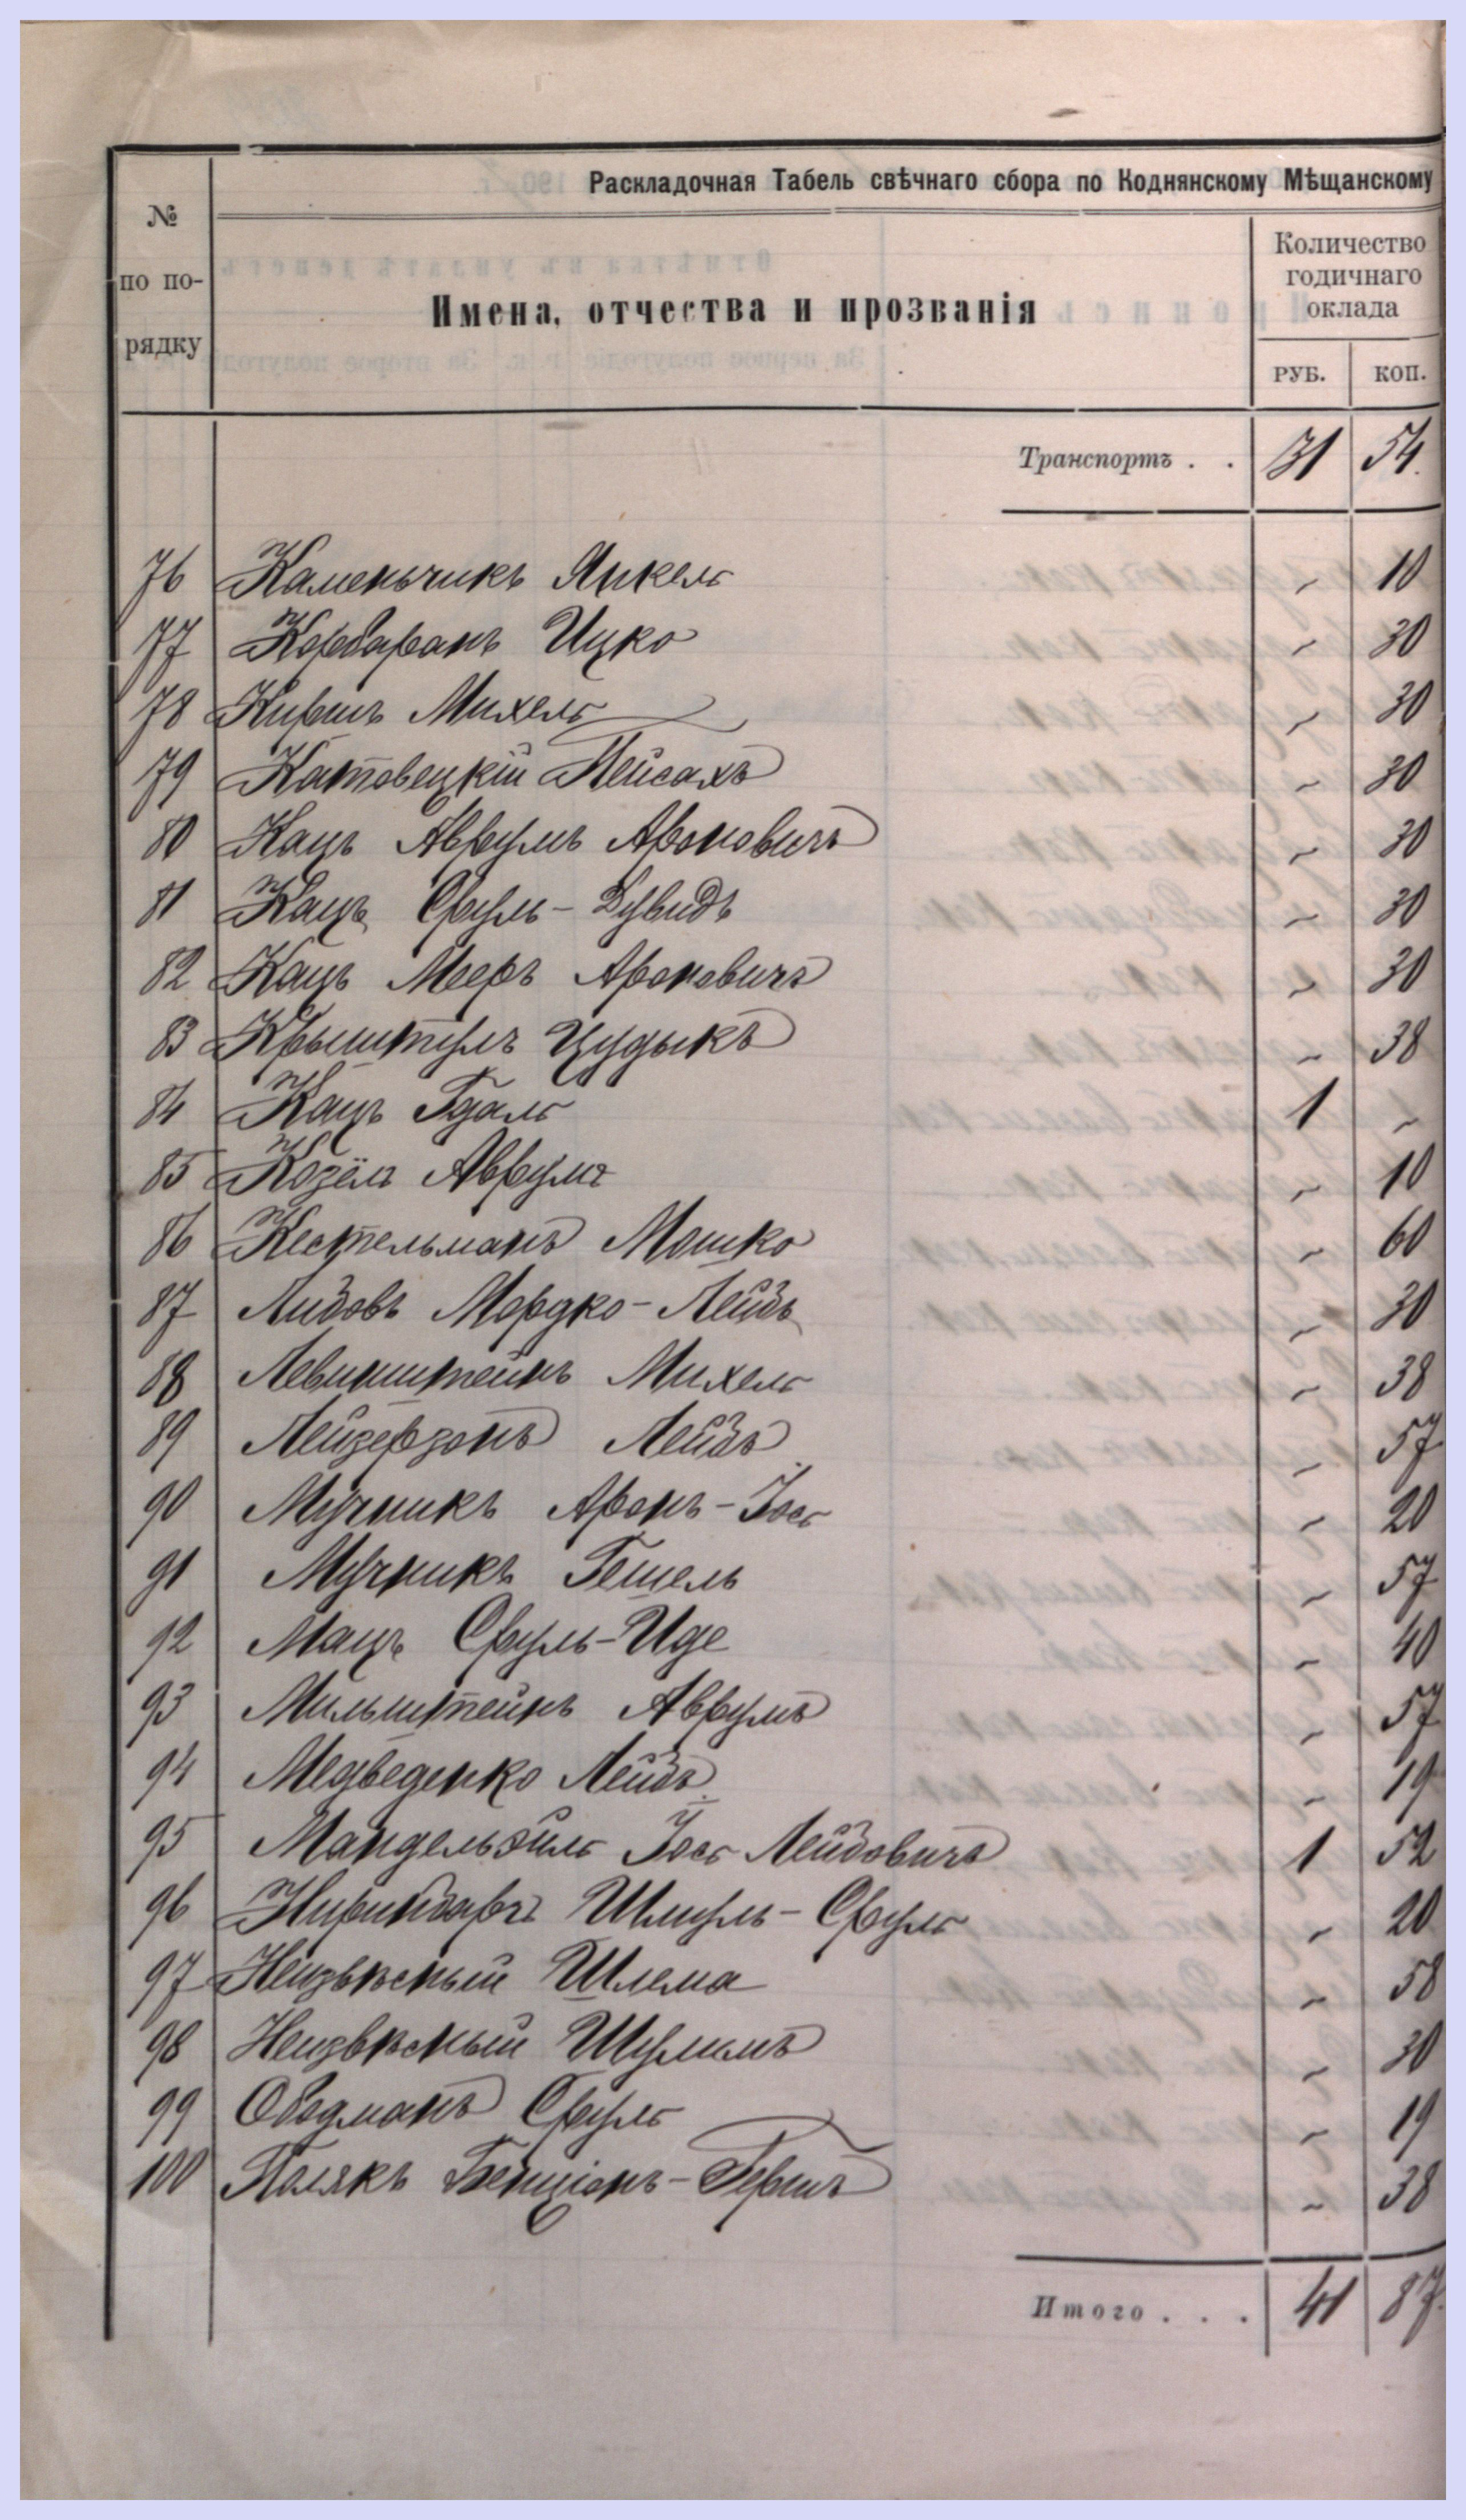 Раскладочная Табель свѣчнаго сбора по Коднянскому Мѣщанскому
№
по по-
рядку
Имена, отчества и прозванія
Количество
годичнаго
оклада
РУБ. КОП.
Транспортъ . . 31 54.
76 Каменьчикъ Янкель ~ 10
77 Корбаранъ Ицко ~ 30
78 Киршъ Михель ~ 30
79 Катовецкій Пейсахъ ~ 30
80 Кацъ Аврумъ Ароновичъ ~ 30
81 Кацъ Сруль-Дувидъ ~ 30
82 Кацъ Мееръ Ароновичъ ~ 30
83 Крыштулъ Цудыкъ ~ 38
84 Кацъ Гдаль 1 ~
85 Козёлъ Аврумъ ~ 10
86 Кестельманъ Мошко ~ 60
87 Либовъ Мордко-Лейбъ ~ 30
88 Левинштейнъ Михель ~ 38
89 Лейзерзонъ Лейбъ ~ 57
90 Мучникъ Аронъ-Іось ~ 20
91 Мучникъ Гешель ~ 57
92 Мацъ Сруль-Иде ~ 40
93 Мильштейнъ Аврумъ ~ 57
94 Медведенко Лейбъ ~ 19
95 Мандельэйль Іось Лейбовичъ 1 52
96 Ниринбаръ Шмуль-Сруль ~ 20
97 Неизвѣсный Шлема ~ 58
98 Неизвѣсный Шулимъ ~ 30
99 Ободманъ Сруль ~ 19
100 Полякъ Бенціонъ-Гершъ ~ 38
Итого . . . 41 87.